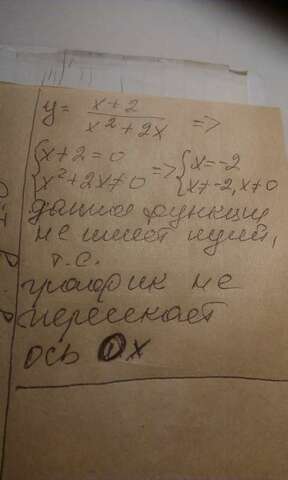 y = (x+2)/(x²+2x) =>
{x+2=0 {x²+2x≠0 => {x=-2 {x≠-2, x≠0
данная функция
не имеет нулей,
т.е.
график не
пересекает
ось Ox